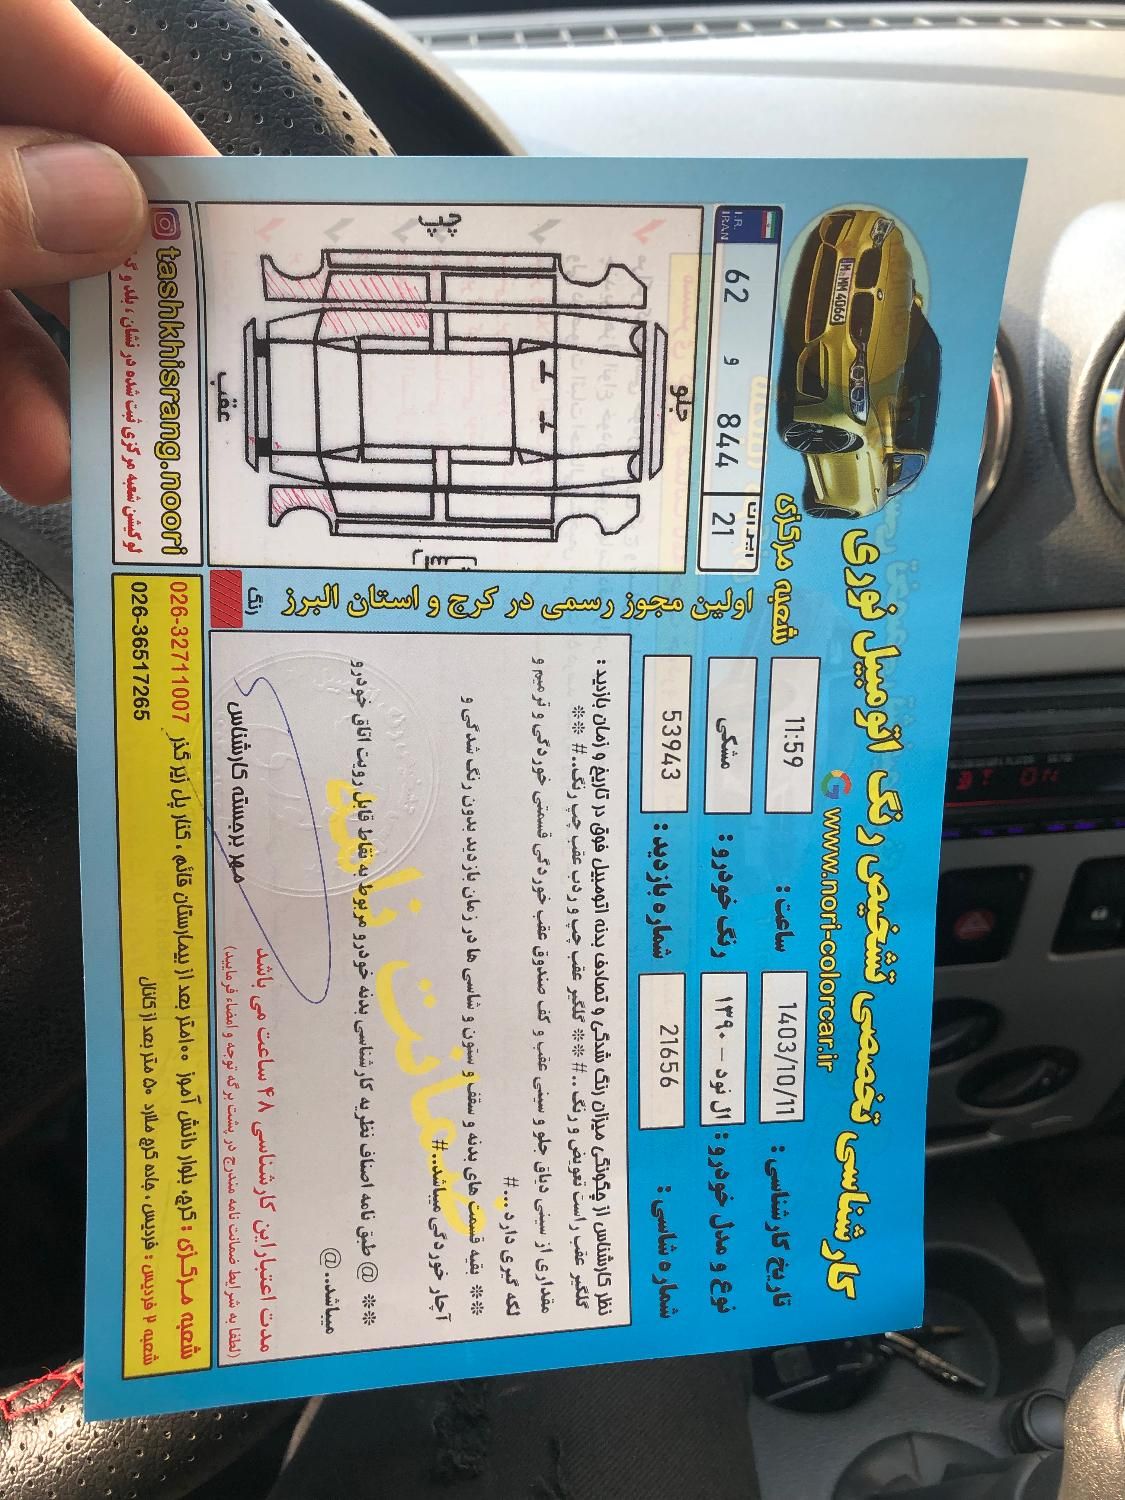 کارشناسی تخصصی تشخیص رنگ اتومبیل نوری
www.nori-colorcar.ir
شعبه مرکزی
M MM 4066
تاریخ کارشناسی : 1403/10/11
ساعت : 11:59
نوع و مدل خودرو : ال نود - ۱۳۹۰
رنگ خودرو : مشکی
شماره شاسی : 21656
شماره بازدید : 53943
I.R. IRAN
62 و 844
ایران 21
اولین مجوز رسمی در کرج و استان البرز
جلو
عقب
چپ
راست
رنگ
نظر کارشناس از چگونگی میزان رنگ شدگی و تصادف بدنه اتومبیل فوق در تاریخ و زمان بازدید :
گلگیر عقب راست تعویض و رنگ ..# ※※ گلگیر عقب چپ و درب عقب چپ رنگ..# ※※
مقداری از سینی دیاق جلو و سینی عقب و کف صندوق عقب خوردگی قسمتی خوردگی و ترمیم و
لکه گیری دارد...#
※※ بقیه قسمت های بدنه و سقف و ستون و شاسی ها در زمان بازدید بدون رنگ شدگی و
آچار خوردگی میباشد..#
※※ @ طبق نامه اصناف نظریه کارشناسی بدنه خودرو مربوط به نقاط قابل رویت اتاق خودرو
میباشد..@
ضمانت نامه
مهر برجسته کارشناس
مدت اعتبار این کارشناسی ۴۸ ساعت می باشد
(لطفا به شرایط ضمانت نامه مندرج در پشت برگه توجه و امضاء فرمایید)
tashkhisrang.noori
لوکیشن شعبه مرکزی ثبت شده در نشان ، بلد و
شعبه مرکزی : کرج، بلوار دانش آموز ۱۰۰متر بعد از بیمارستان قائم ، کنار پل زیر گذر 026-32711007
شعبه ۲ فردیس : فردیس ، جاده کرج ملارد ۵۰ متر بعد از کانال 026-36517265